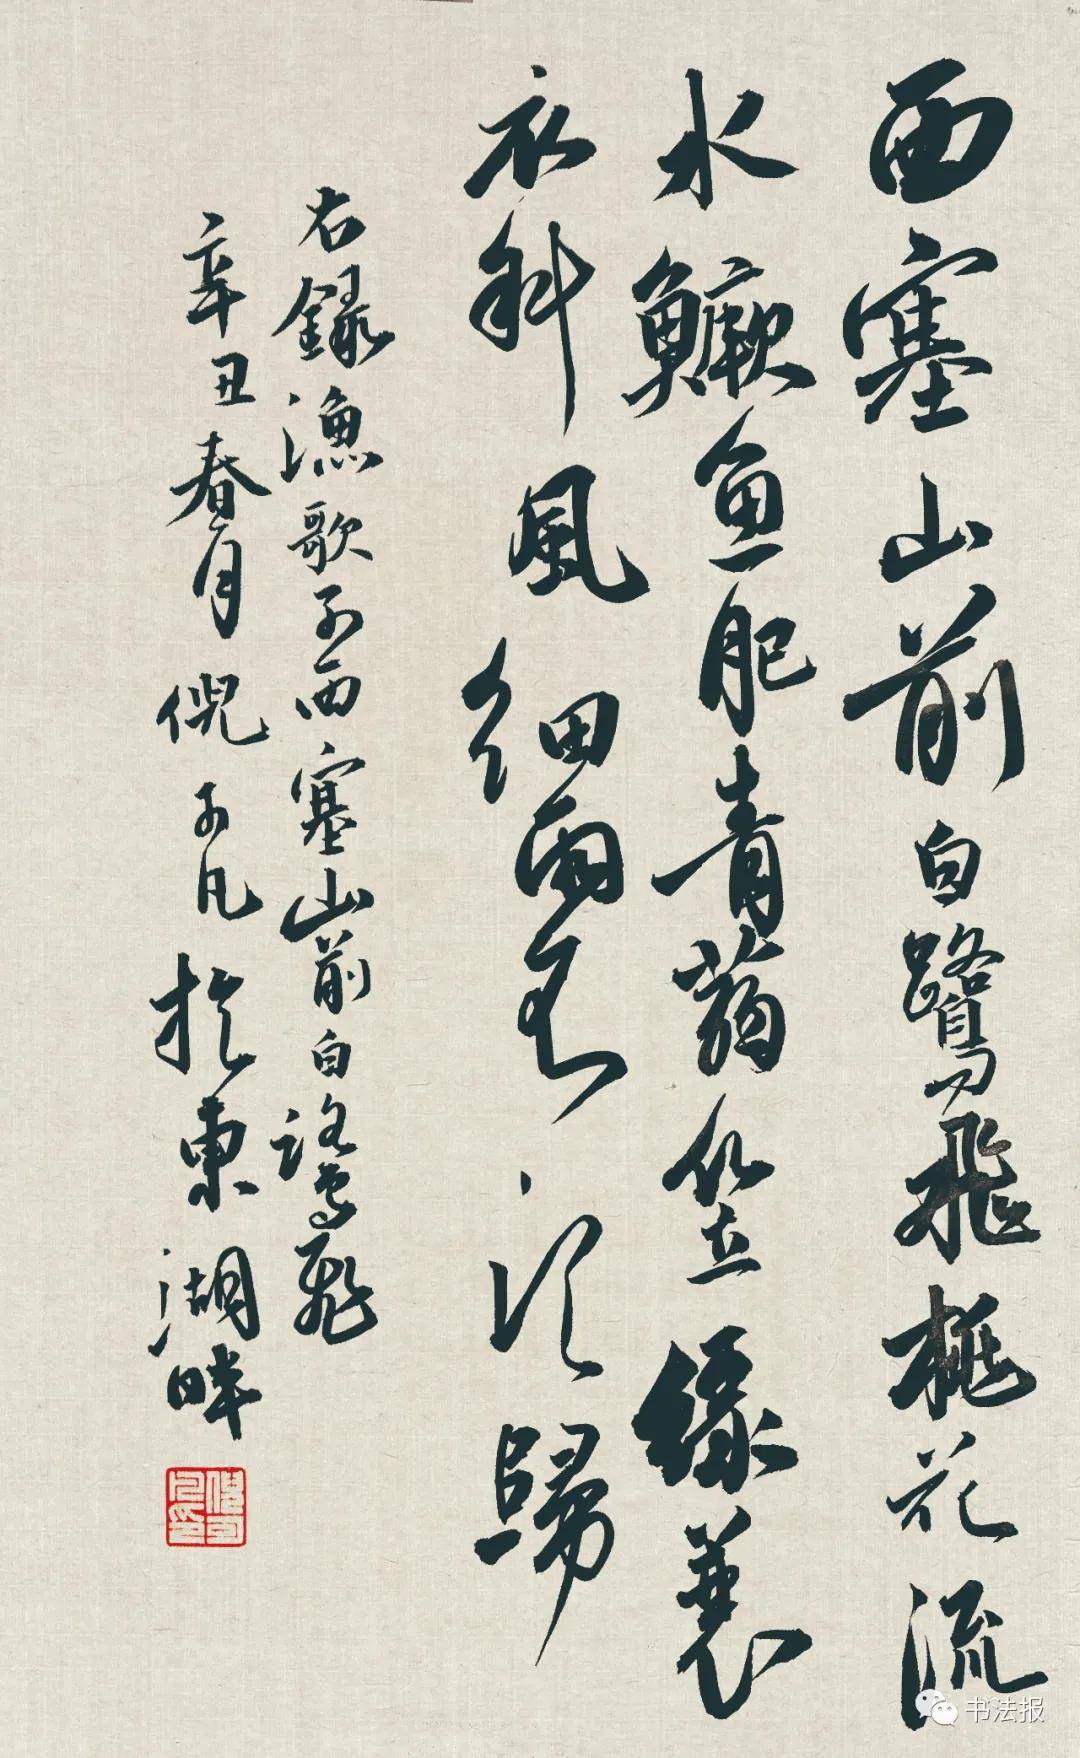 西塞山前白鷺飛桃花流
水鱖魚肥青蒻笠綠蓑
衣斜風細雨不須歸
右錄漁歌子西塞山前白鷺飛
辛丑春月倪子凡於東湖畔
倪子凡印
书法报